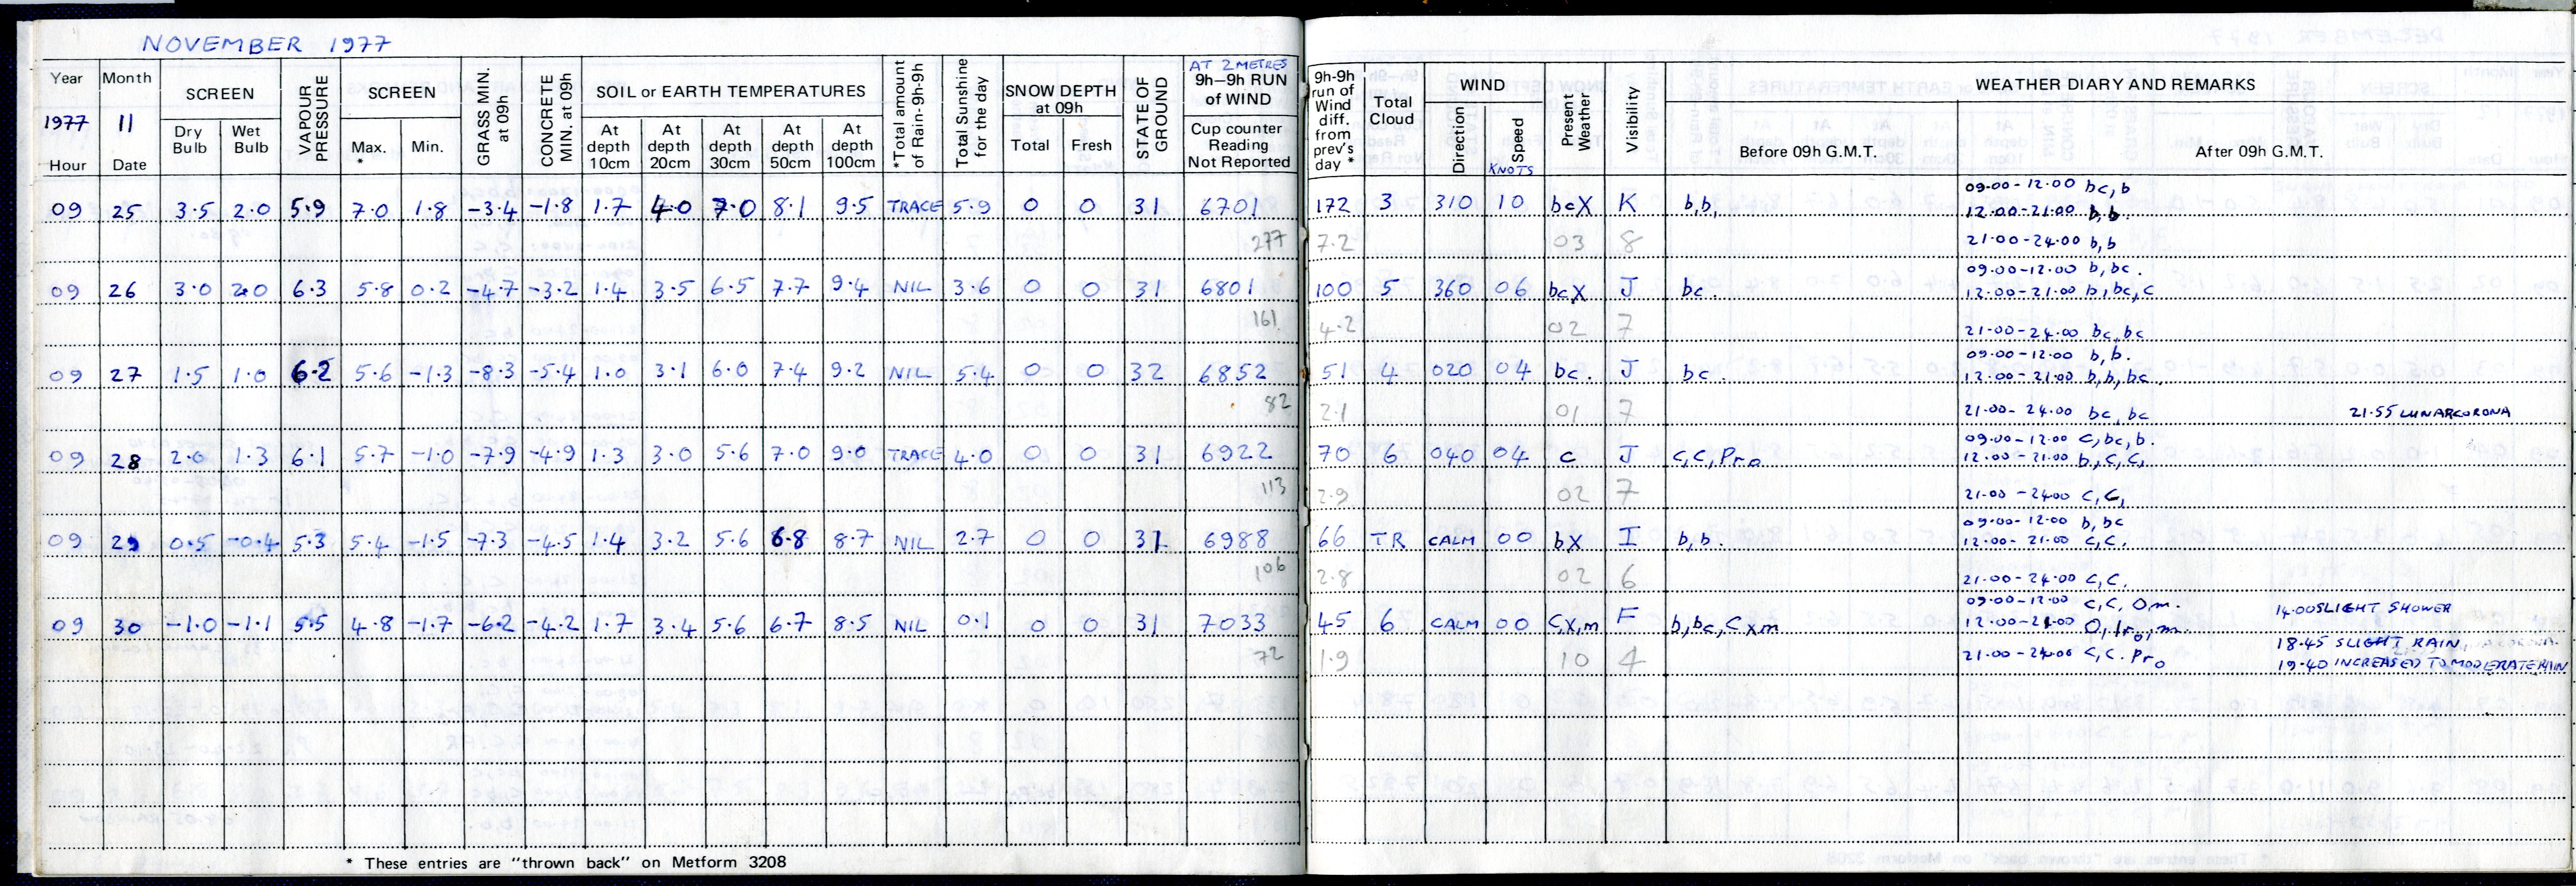 NOVEMBER 1977
Year Month SCREEN VAPOUR PRESSURE SCREEN GRASS MIN. at 09h CONCRETE MIN. at 09h SOIL or EARTH TEMPERATURES *Total amount of Rain-9h-9h Total Sunshine for the day SNOW DEPTH at 09h STATE OF GROUND AT 2 METRES 9h-9h RUN of WIND 9h-9h run of Wind diff. from prev's day * Total Cloud WIND Present Weather Visibility WEATHER DIARY AND REMARKS
1977 11 Dry Bulb Wet Bulb Max. * Min. At depth 10cm At depth 20cm At depth 30cm At depth 50cm At depth 100cm Total Fresh Cup counter Reading Not Reported Direction Speed KNOTS Before 09h G.M.T. After 09h G.M.T.
Hour Date
09 25 3.5 2.0 5.9 7.0 1.8 -3.4 -1.8 1.7 4.0 7.0 8.1 9.5 TRACE 5.9 0 0 31 6701 172 3 310 10 bcX K b,b, 09.00-12.00 bc,b
12.00-21.00 b,b.
277 7.2 03 8 21.00-24.00 b,b
09 26 3.0 2.0 6.3 5.8 0.2 -4.7 -3.2 1.4 3.5 6.5 7.7 9.4 NIL 3.6 0 0 31 6801 100 5 360 06 bcX J bc. 09.00-12.00 b,bc.
12.00-21.00 b,bc,c
161 4.2 02 7 21.00-24.00 bc,bc
09 27 1.5 1.0 6.2 5.6 -1.3 -8.3 -5.4 1.0 3.1 6.0 7.4 9.2 NIL 5.4 0 0 32 6852 51 4 020 04 bc. J bc. 09.00-12.00 b,b.
12.00-21.00 b,b,bc.
82 2.1 01 7 21.00-24.00 bc,bc 21.55 LUNAR CORONA
09 28 2.0 1.3 6.1 5.7 -1.0 -7.9 -4.9 1.3 3.0 5.6 7.0 9.0 TRACE 4.0 0 0 31 6922 70 6 040 04 c J c,c,Pro 09.00-12.00 c,bc,b.
12.00-21.00 b,c,c,
113 2.9 02 7 21.00-24.00 c,c,
09 29 0.5 -0.4 5.3 5.4 -1.5 -7.3 -4.5 1.4 3.2 5.6 6.8 8.7 NIL 2.7 0 0 31 6988 66 TR CALM 00 bX I b,b. 09.00-12.00 b,bc
12.00-21.00 c,c.
106 2.8 02 6 21.00-24.00 c,c.
09 30 -1.0 -1.1 5.5 4.8 -1.7 -6.2 -4.2 1.7 3.4 5.6 6.7 8.5 NIL 0.1 0 0 31 7033 45 6 CALM 00 c,x,m F b,bc,cxm 09.00-12.00 c,c,om. 14.00 SLIGHT SHOWER
12.00-21.00 O,Iro,m.
18.45 SLIGHT RAIN
72 1.9 10 4 21.00-24.00 c,c.Pro 19.40 INCREASED TO MODERATE RAIN
* These entries are "thrown back" on Metform 3208